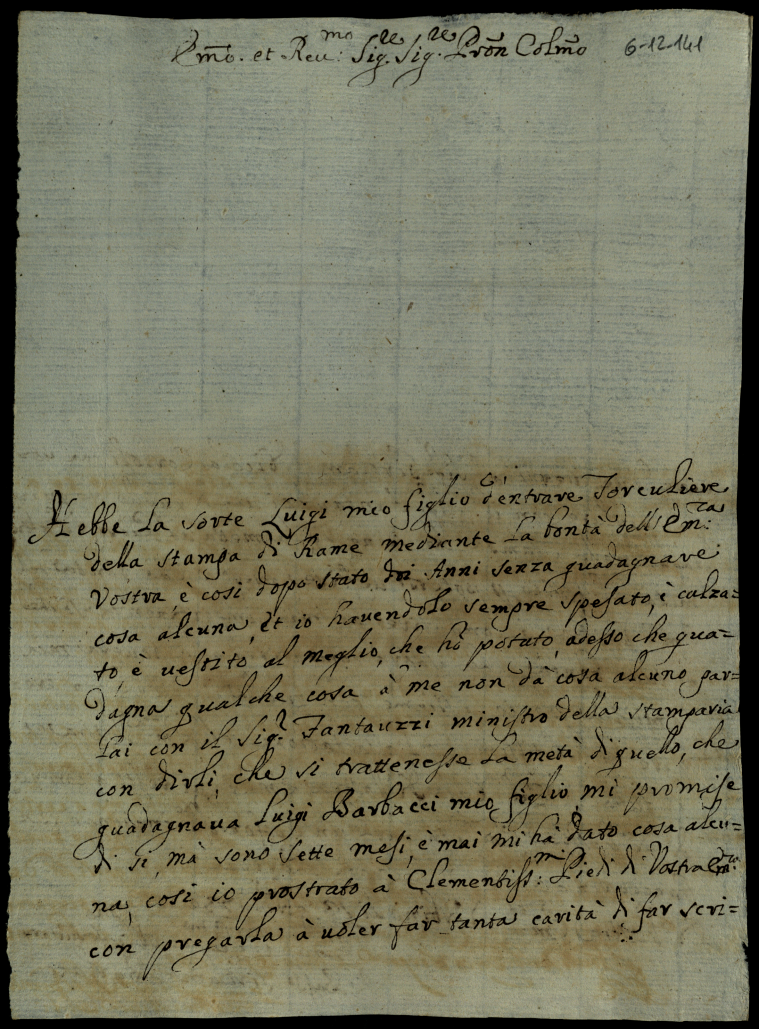 Em̃o. et Reu:mo Sig.re Sig.re Pron̄ Colm̃o 6-12-141
Hebbe La sorte Luigi mio figlio d'entrare Torculiere
della stampa di Rame mediante La bontà dell'Em̃:za
Vostra, è così dopo stato doi Anni senza guadagnare
cosa alcuna, Et io havendolo sempre spesato, è calza=
to, è uestito al meglio, che hò potuto, adesso che gua=
dagna qualche cosa à me non dà cosa alcuno par=
lai con il Sig.r Fantauzzi ministro della stamparia
con dirli, che si trattenesse La metà di quello, che
guadagnaua Luigi Barbacci mio figlio, mi promise
di si, mà sono sette mesi, è mai mi hà dato cosa alcu=
na, così io prostrato à Clementiss:mi Piedi di Vostra Em̃:za
con pregarla à uoler far tanta carità di far scri=